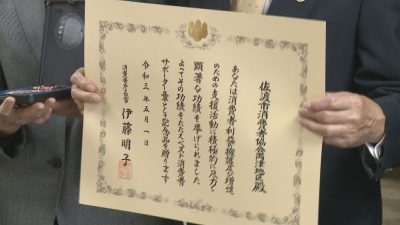 佐渡市消費者協会両津地区殿
あなたは消費者利益擁護及び増進
のための支援活動に積極的に尽力し
顕著な功績を挙げられました
よってその功績をたたえベスト消費者
サポーター章として記念品を贈ります
令和三年五月一日
消費者庁長官 伊藤明子